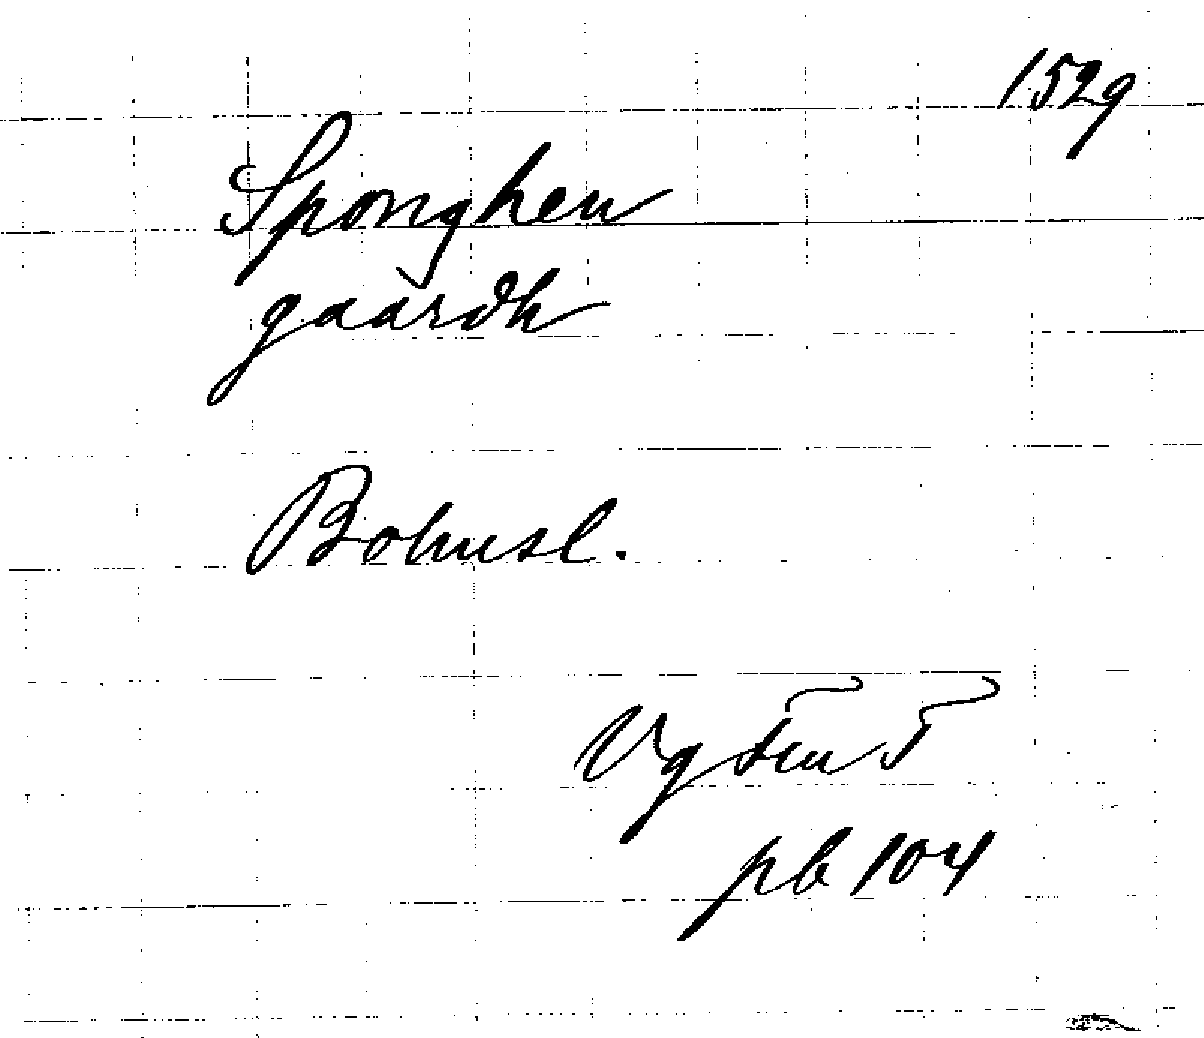 1529
Sponghen
gaardh
Bohusl.
Vg
pb 104